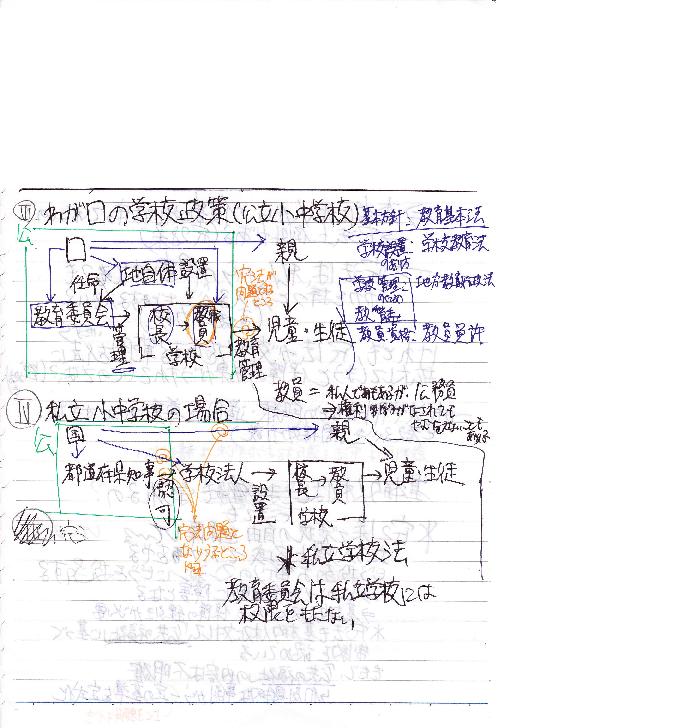 Ⅲ わが国の学校政策(公立小中学校)
基本方針:教育基本法
公
国
親
学校設置のあり方:学校教育法
任命
地自体
設置
憲法が問題となるところ
教育委員会
管理
校長
教員
学校
教育
管理
児童・生徒
地方教育行政法
教員資格:教員免許
教員=私人であるが、公務員
Ⅳ 私立小中学校の場合
公
国
親
都道府県知事
認可
学校法人
設置
校長
教員
学校
児童・生徒
憲法問題となりうるところ
※私立学校法
教育委員会は私立学校には
権限をもたない